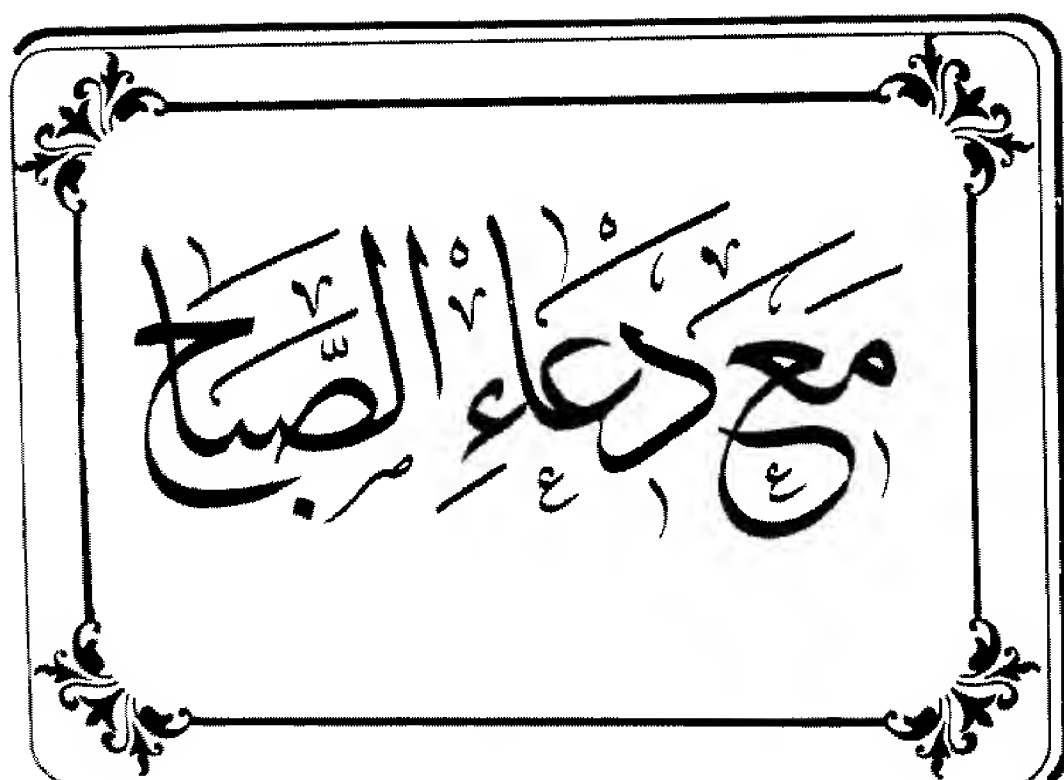 مَعَ دُعَاءِ الصَّبَاح